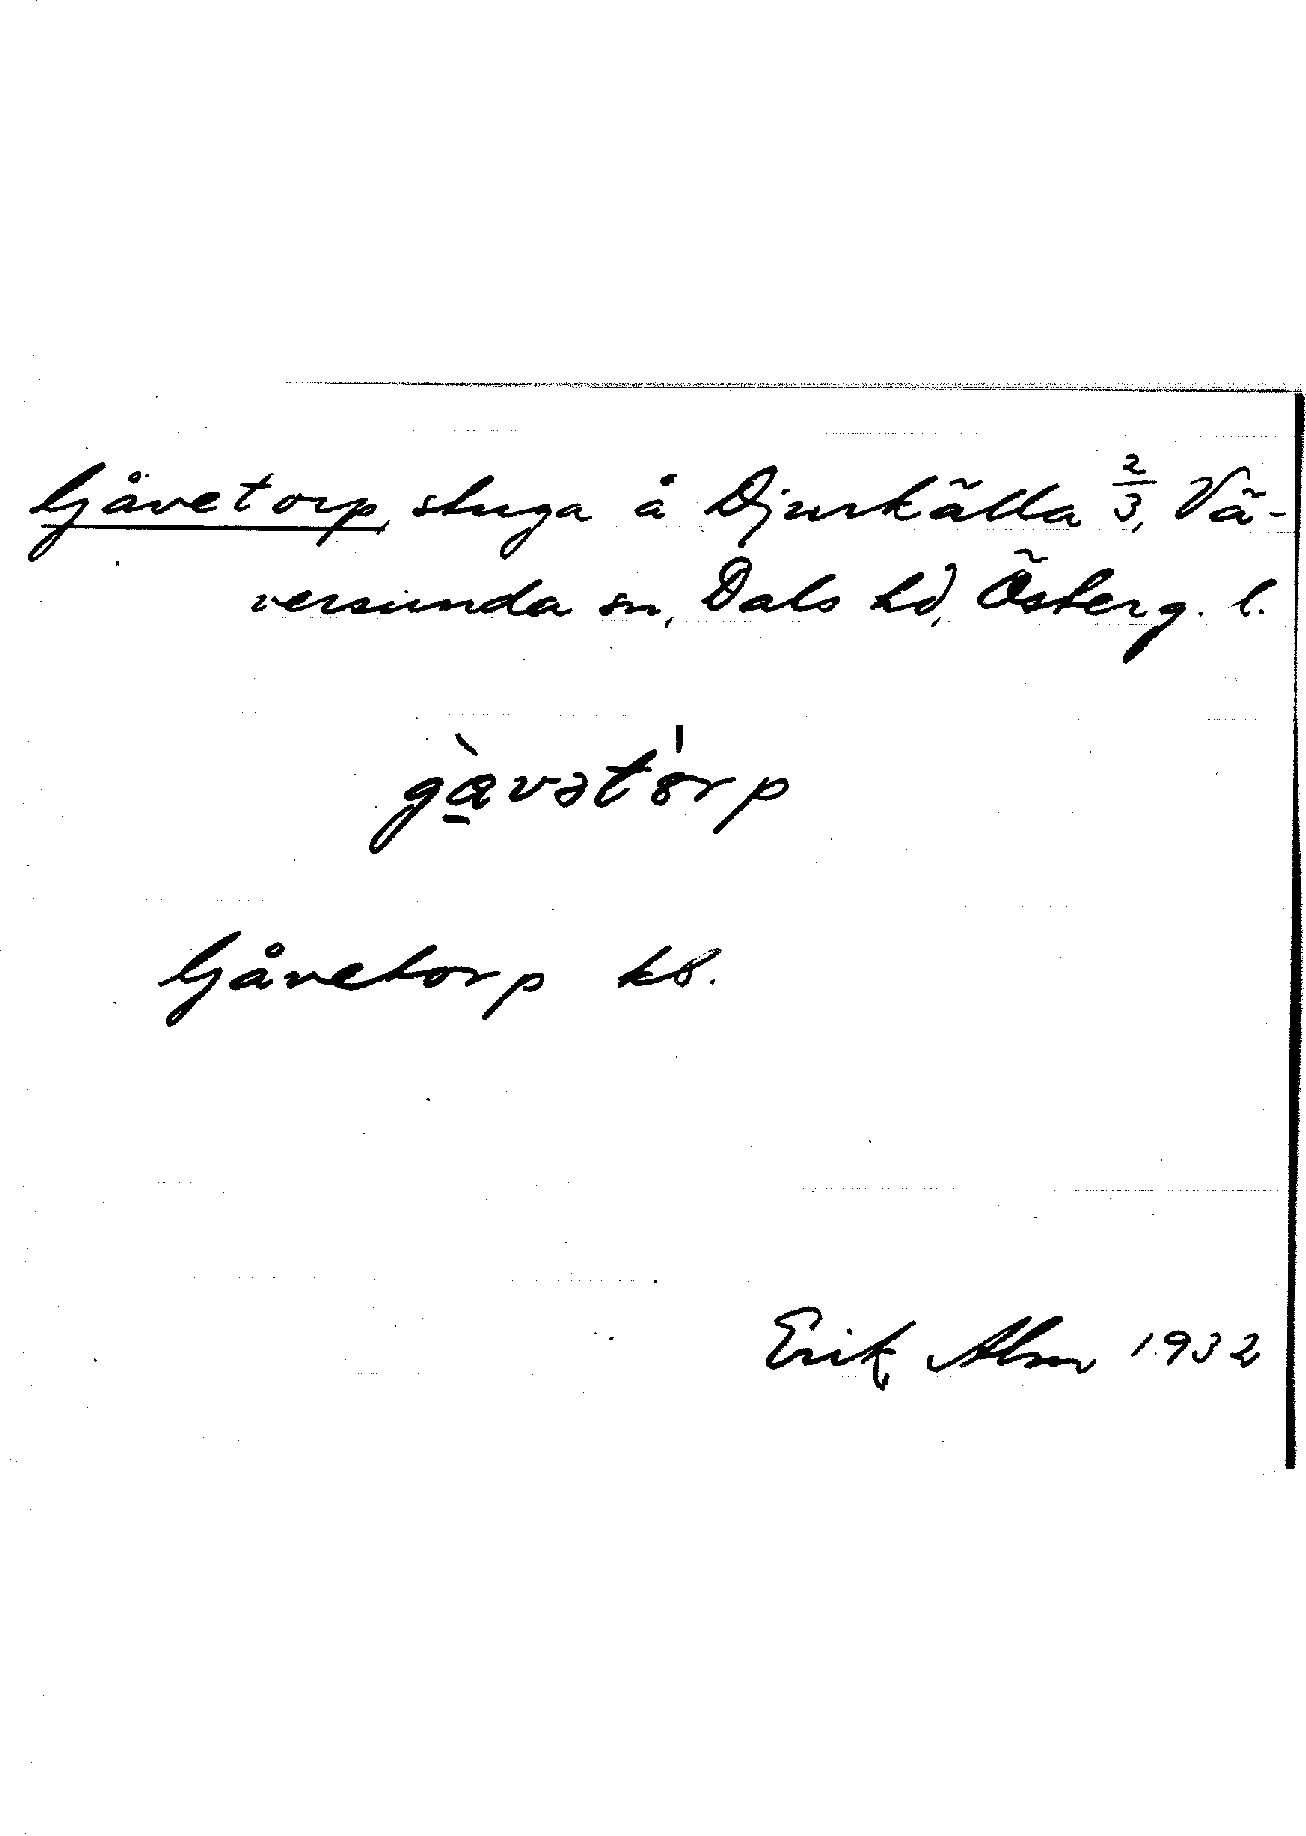 Gåvetorp, stuga å Djurkälla 2/3, Vä-
versunda sn, Dals hd, Österg. l.
gàvətórp
Gåvetorp kb.
Erik Alm 1932